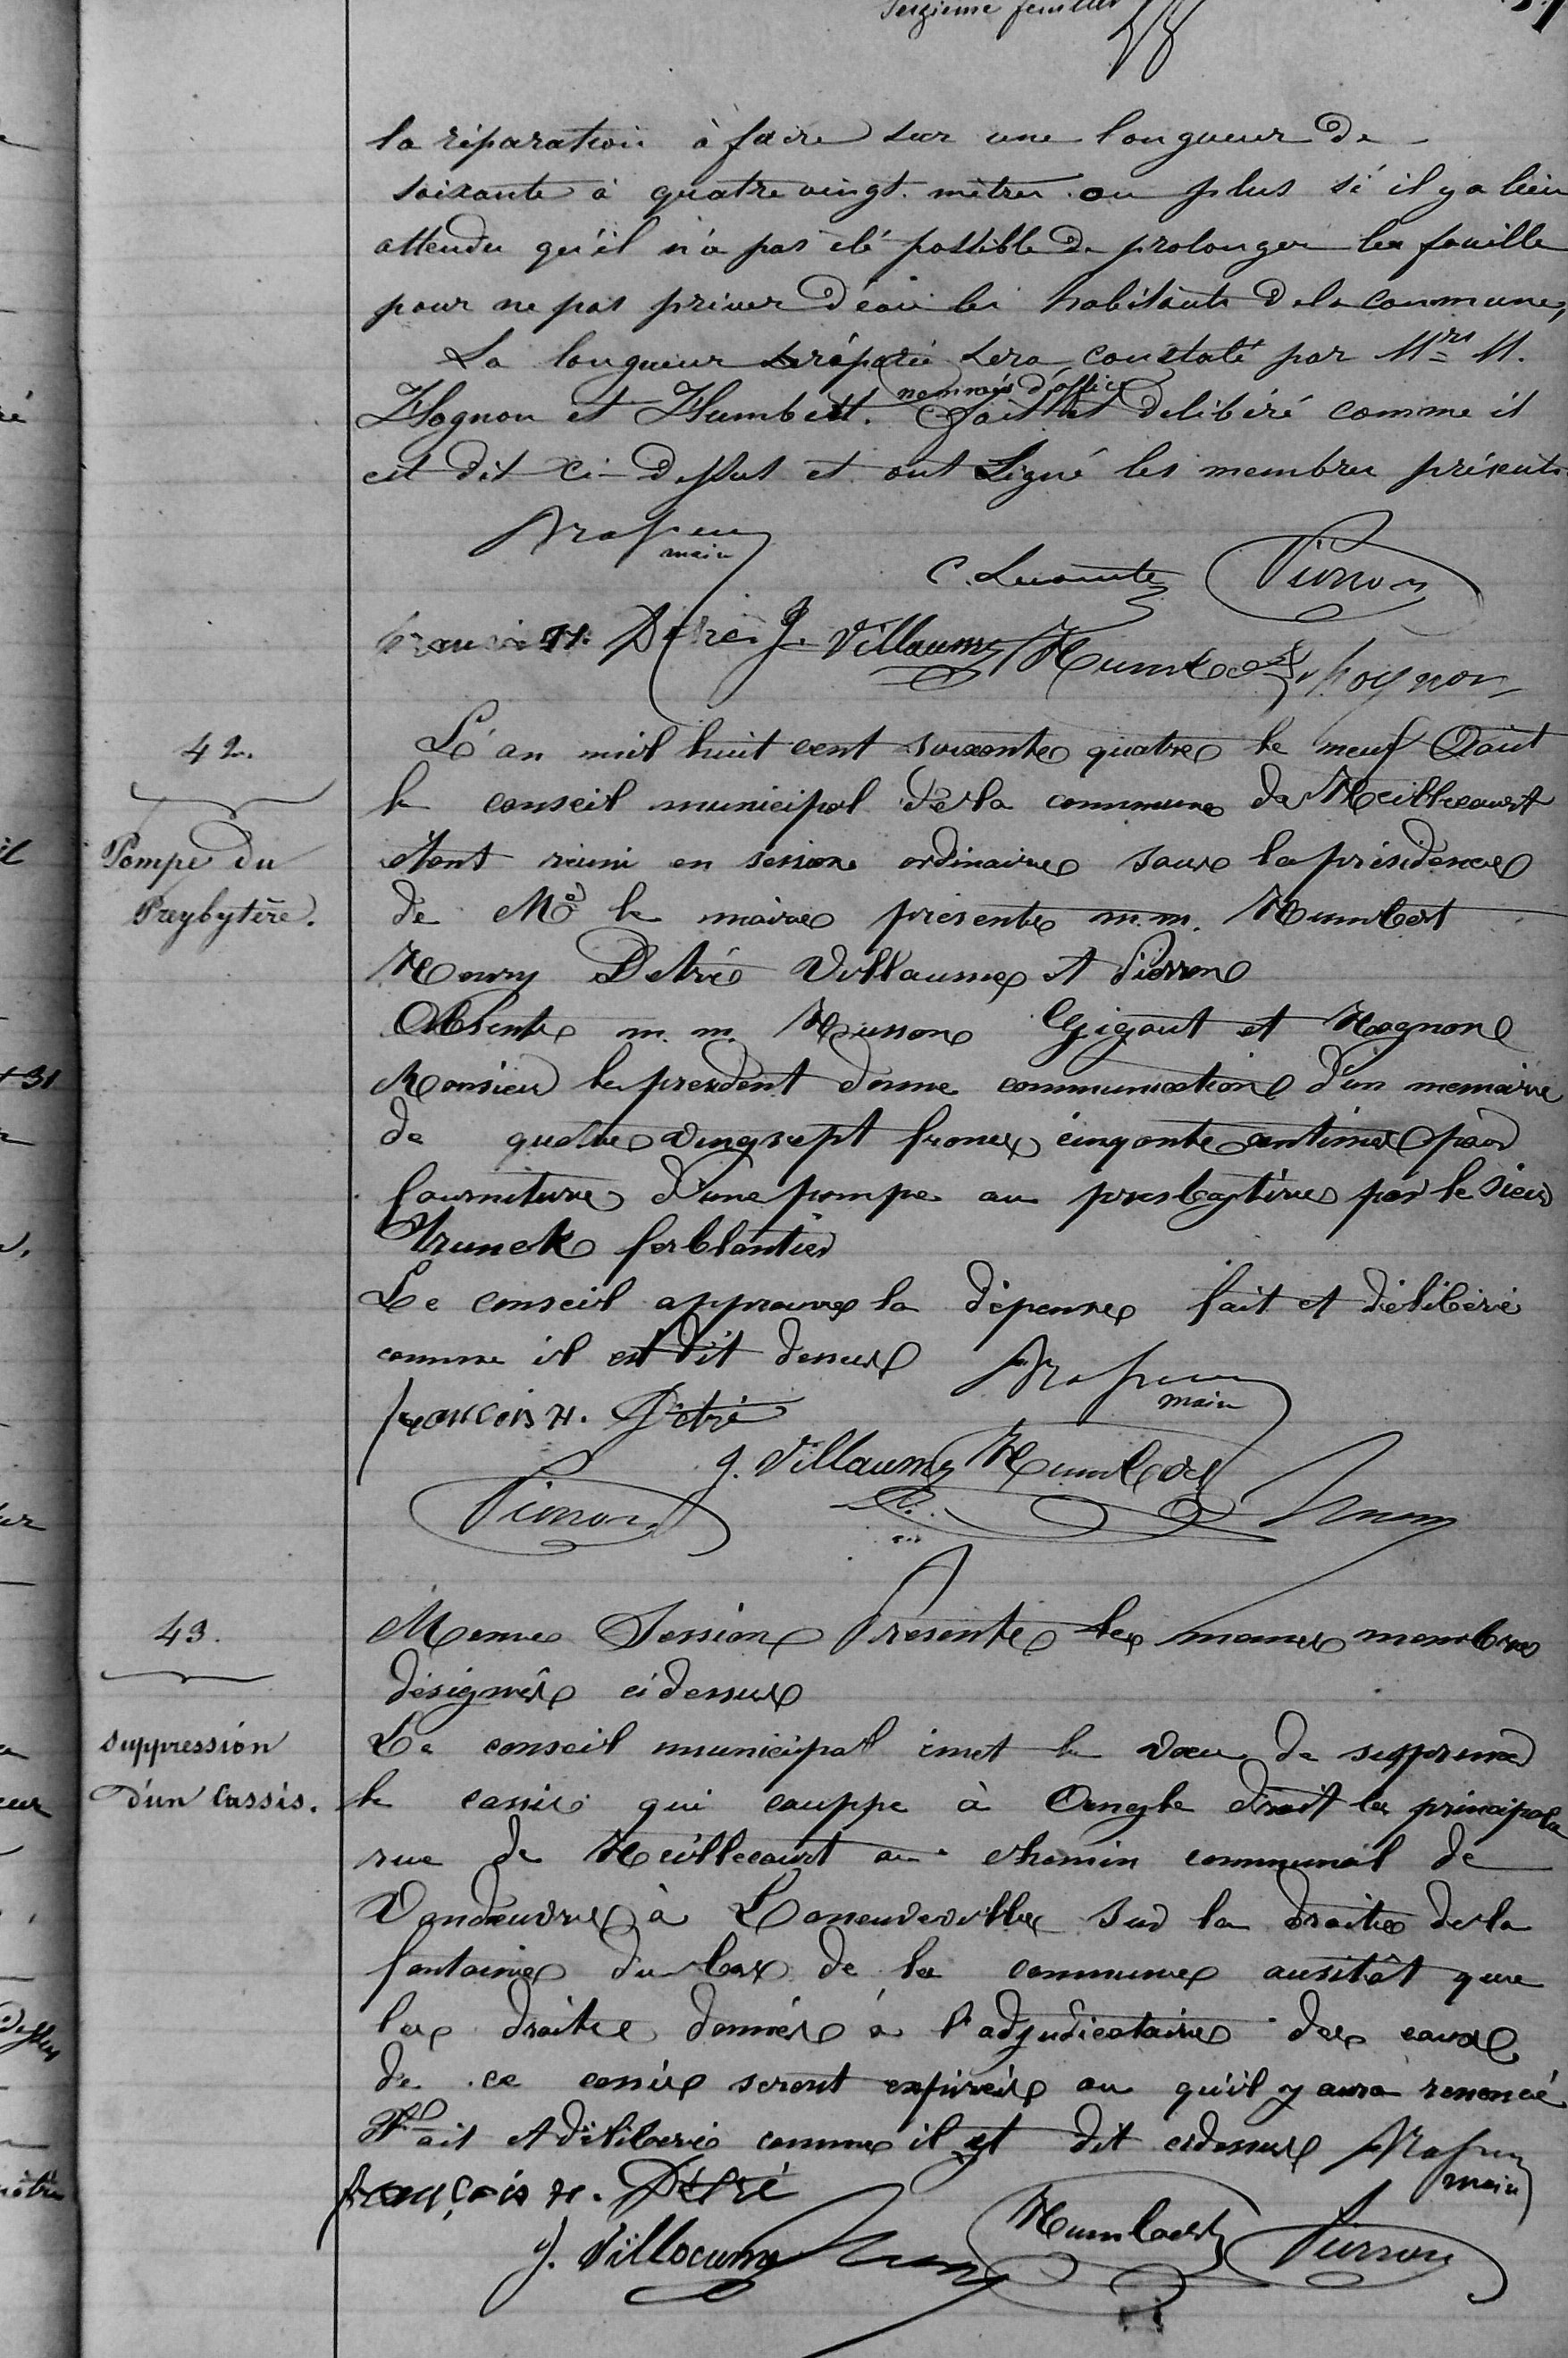 Seizième feuillet
la réparation à faire sur une longueur de
soixante à quatre vingt mètres ou plus si il y a lieu
attendu qu'il n'a pas été possible de prolonger les fouille
pour ne pas priver d'eau les habitants de la commune,
La longueur réparée sera constaté par Mrs M.
nommés d'office
Hognon et Humbert. Fait et delibéré comme il
est dit ci-dessus et ont signé les membres présents
maire
C. Lecomte Pierron
françois H. Détré J. Villaume Humbert hognon
42.
Pompe du
Preybytère.
L'an mil huit cent soixante quatre le neuf Août
le conseil municipal de la commune de Heillecourt
étant réuni en session ordinaire sous la présidence
de Mr le maire présents m.m. Humbert
Henry Detré Villaume et Pierron
Absents m.m. Husson Gigout et Hognon
Monsieur le president donne communication d'un memoire
de quatre vingsept francs cinqante centimes pour
fourniture d'une pompe au presbytère par le sieur
Trunck ferblantier
Le conseil approuve la dépense fait et délibéré
comme il est dit dessus
maire
françois H. Détré
J. Villaume Humbert
Pierron
43.
suppression
d'un Cassis.
Meme Session Presents les memes membres
désignés cidessus
Le conseil municipal émet le voeu de supprimer
le cassis qui couppe à Angle droit la principale
rue de Heillecourt au chemin communal de
Vandeuvre à Laneuveville sur la droite de la
fontaine du bas de la commune ausitôt que
les droits donnés à l'adjudicataire des eaux
de ce cassis seront expirés ou qu'il y aura renoncé
Fait et délibéré comme il est dit cidessus
maire
françois H. Détré
J. Villaume Humbert Pierron